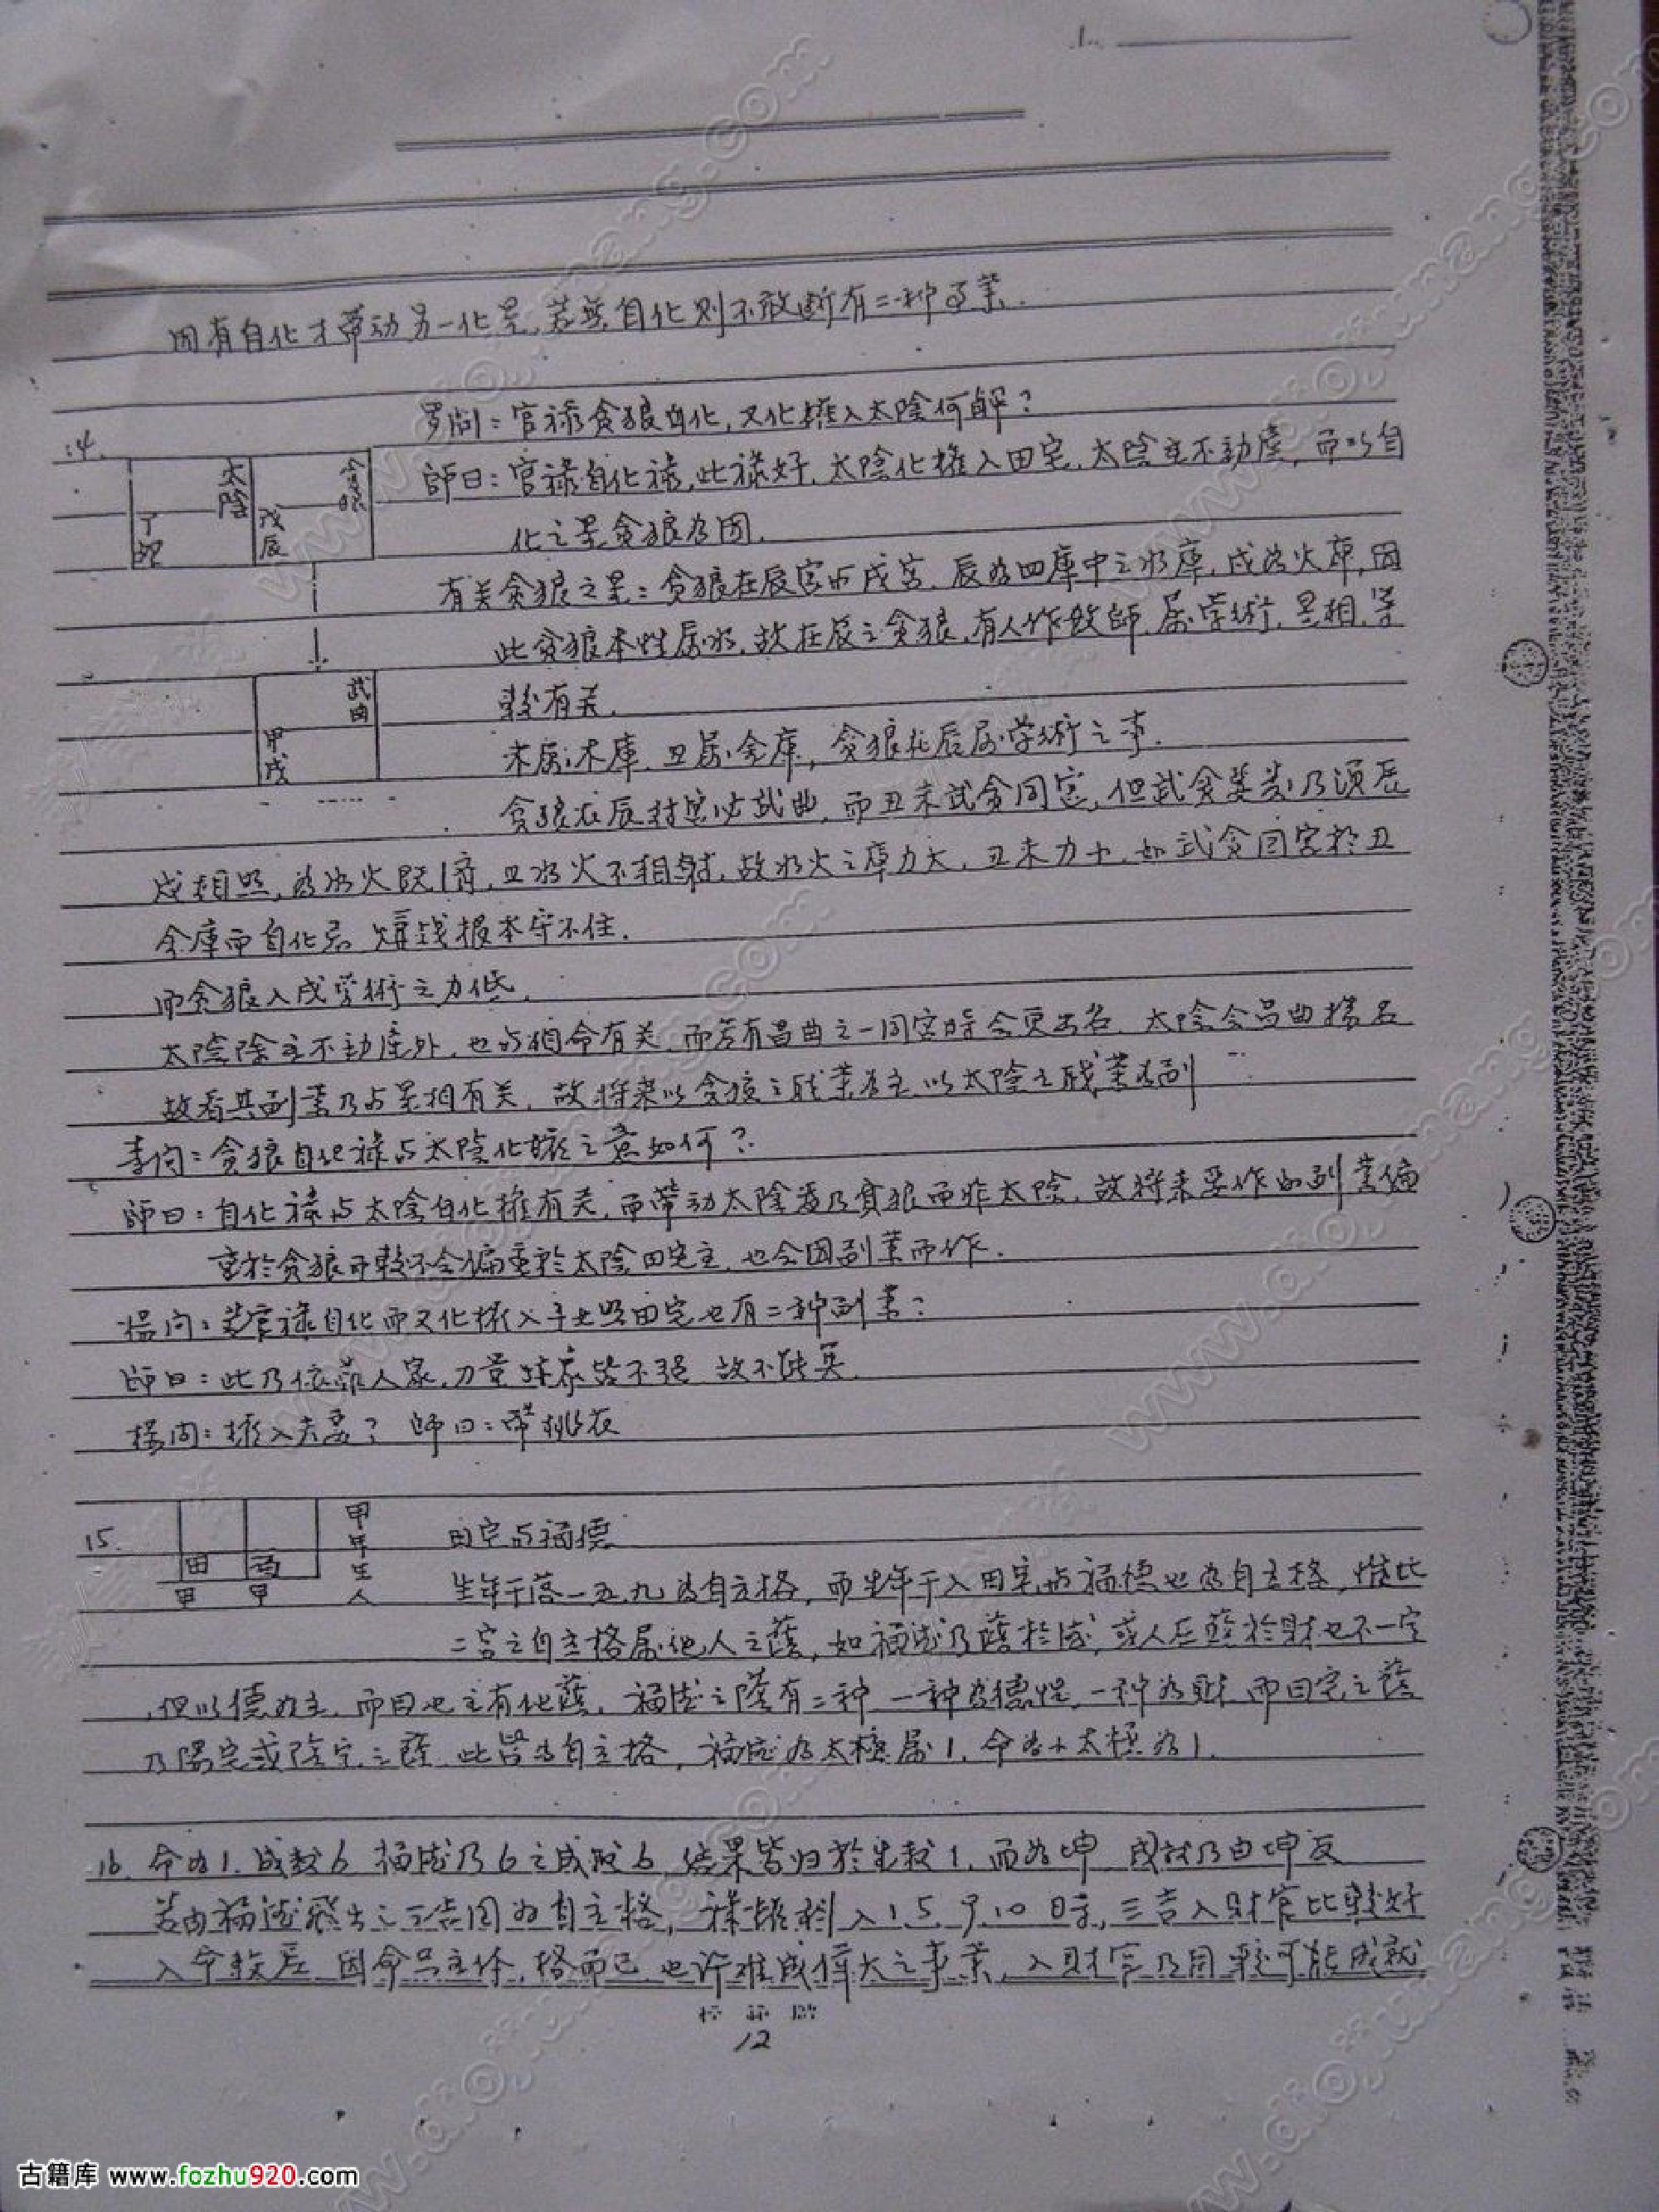 因有自化才帶动另一化星,若無自化则不敢断有二种事業.
14.
罗问:官禄贪狼自化,又化權入太陰何解?
師曰:官禄自化禄,此禄好,太陰化權入田宅,太陰主不动產,而以自
化之星贪狼为因.
太陰
丁卯
贪狼
戊辰
有关贪狼之星:贪狼在辰宫与戌宫,辰为四庫中之水庫,戌为火庫,因
此贪狼本性属水,故在辰之贪狼,有人作教師,属学術,星相,等
較有关.
武曲
甲戌
未属木庫,丑属金庫,贪狼在辰属学術之事.
贪狼在辰对宫必武曲,而丑未武贪同宫,但武贪 乃須辰
戌相照,为水火既濟,且水火不相射,故水火之庫力大,丑未力小,如武贪同宫於丑
金庫而自化忌,賺錢根本守不住.
而贪狼入戌学術之力低.
太陰除主不动產外,也与相命有关,而若有昌曲之一同宫時会更出名,太陰会昌曲揚名
故看其副業乃与星相有关,故将来以贪狼之职業为主,以太陰之职業为副
李问:贪狼自化禄与太陰化權之意如何?
師曰:自化禄与太陰自化權有关,而带动太陰者乃貪狼而非太陰,故将来要作的副業偏
重於贪狼而較不会偏重於太陰田宅主,也会因副業而作.
楊问:若官禄自化而又化權入子女照田宅也有二种副業?
師曰:此乃依靠人家,力量 皆不强,故不能算.
楊问:權入夫妻? 師曰:帶桃花
15.
田
甲
福
甲
甲年生人
田宅与福德
生年干落一五九为自立格,而生年干入田宅与福德也为自立格,惟此
二宫之自立格属他人之蔭,如福德乃蔭於德,或人在蔭於財也不一定
但以德为主,而田也主有他蔭,福德之蔭有二种,一种为德性,一种为財,而田宅之蔭
乃陽宅或陰宅之蔭,此皆为自立格,福德为太極属1,命为小太極为1.
16. 命为1,成数6,福德乃6之成数6,结果皆归於生数1,而为坤,成就乃由坤友
若由福德飛出之三吉因为自立格,禄權科入1.5.9.10時,三吉入財官比較好
入命較差,因命只主体,格而已,也许难成偉大之事業,入財官乃用較可能成就
12
古籍库 www.fozhu920.com